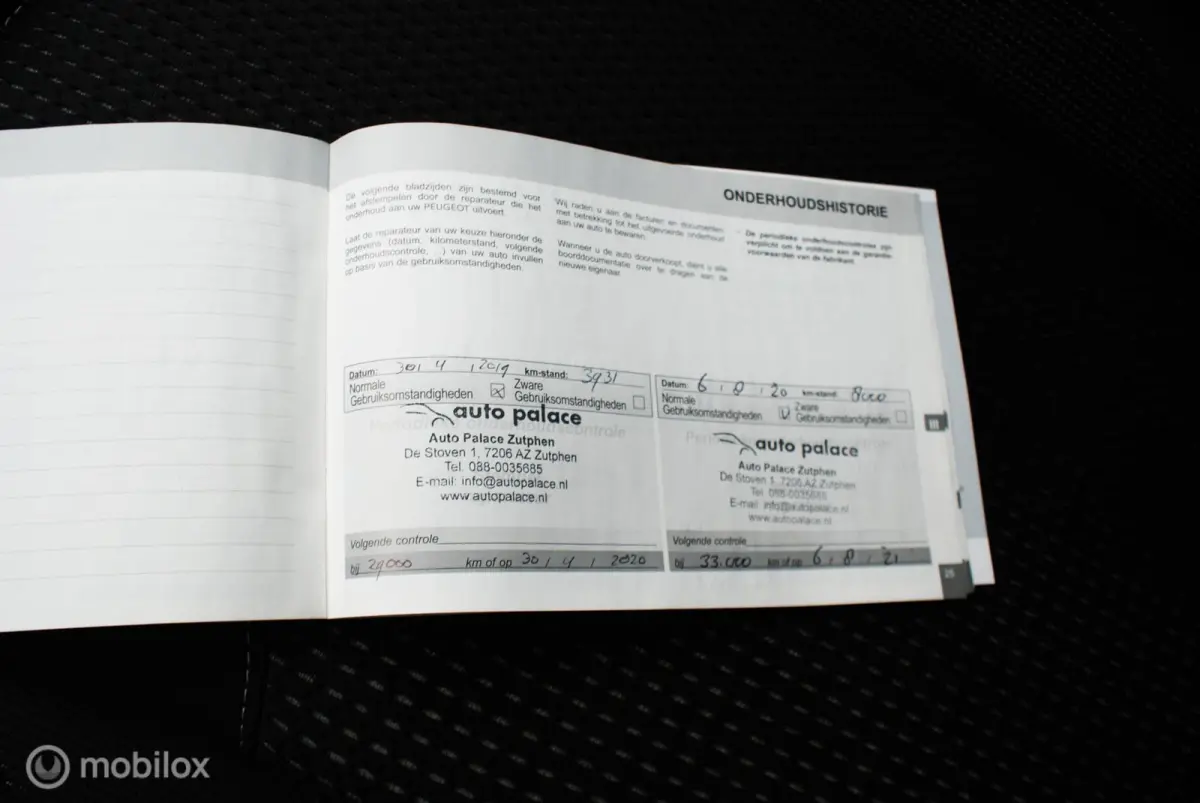 ONDERHOUDSHISTORIE
De volgende bladzijden zijn bestemd voor
het afstempelen door de reparateur die het
onderhoud aan uw PEUGEOT uitvoert.
Laat de reparateur van uw keuze hieronder de
gegevens (datum, kilometerstand, volgende
onderhoudscontrole, ...) van uw auto invullen
op basis van de gebruiksomstandigheden.
Wij raden u aan de facturen en documenten
met betrekking tot het uitgevoerde onderhoud
aan uw auto te bewaren.
Wanneer u de auto doorverkoopt, dient u alle
boorddocumentatie over te dragen aan de
nieuwe eigenaar.
De periodieke onderhoudscontroles zijn
verplicht om te voldoen aan de garantie-
voorwaarden van de fabrikant.
Datum: 30/ 4 / 2019 km-stand: 3931
Normale
Gebruiksomstandigheden
Zware
Gebruiksomstandigheden
auto palace
Auto Palace Zutphen
De Stoven 1, 7206 AZ Zutphen
Tel. 088-0035685
E-mail: info@autopalace.nl
www.autopalace.nl
Volgende controle
bij 29000 km of op 30 / 4 / 2020
Datum: 6 / 8 / 20 km-stand: 8000
Normale
Gebruiksomstandigheden
Zware
Gebruiksomstandigheden
auto palace
Auto Palace Zutphen
De Stoven 1, 7206 AZ Zutphen
Tel. 088-0035685
E-mail: info@autopalace.nl
www.autopalace.nl
Volgende controle
bij 33.000 km of op 6 / 8 / 21
III
25
mobilox